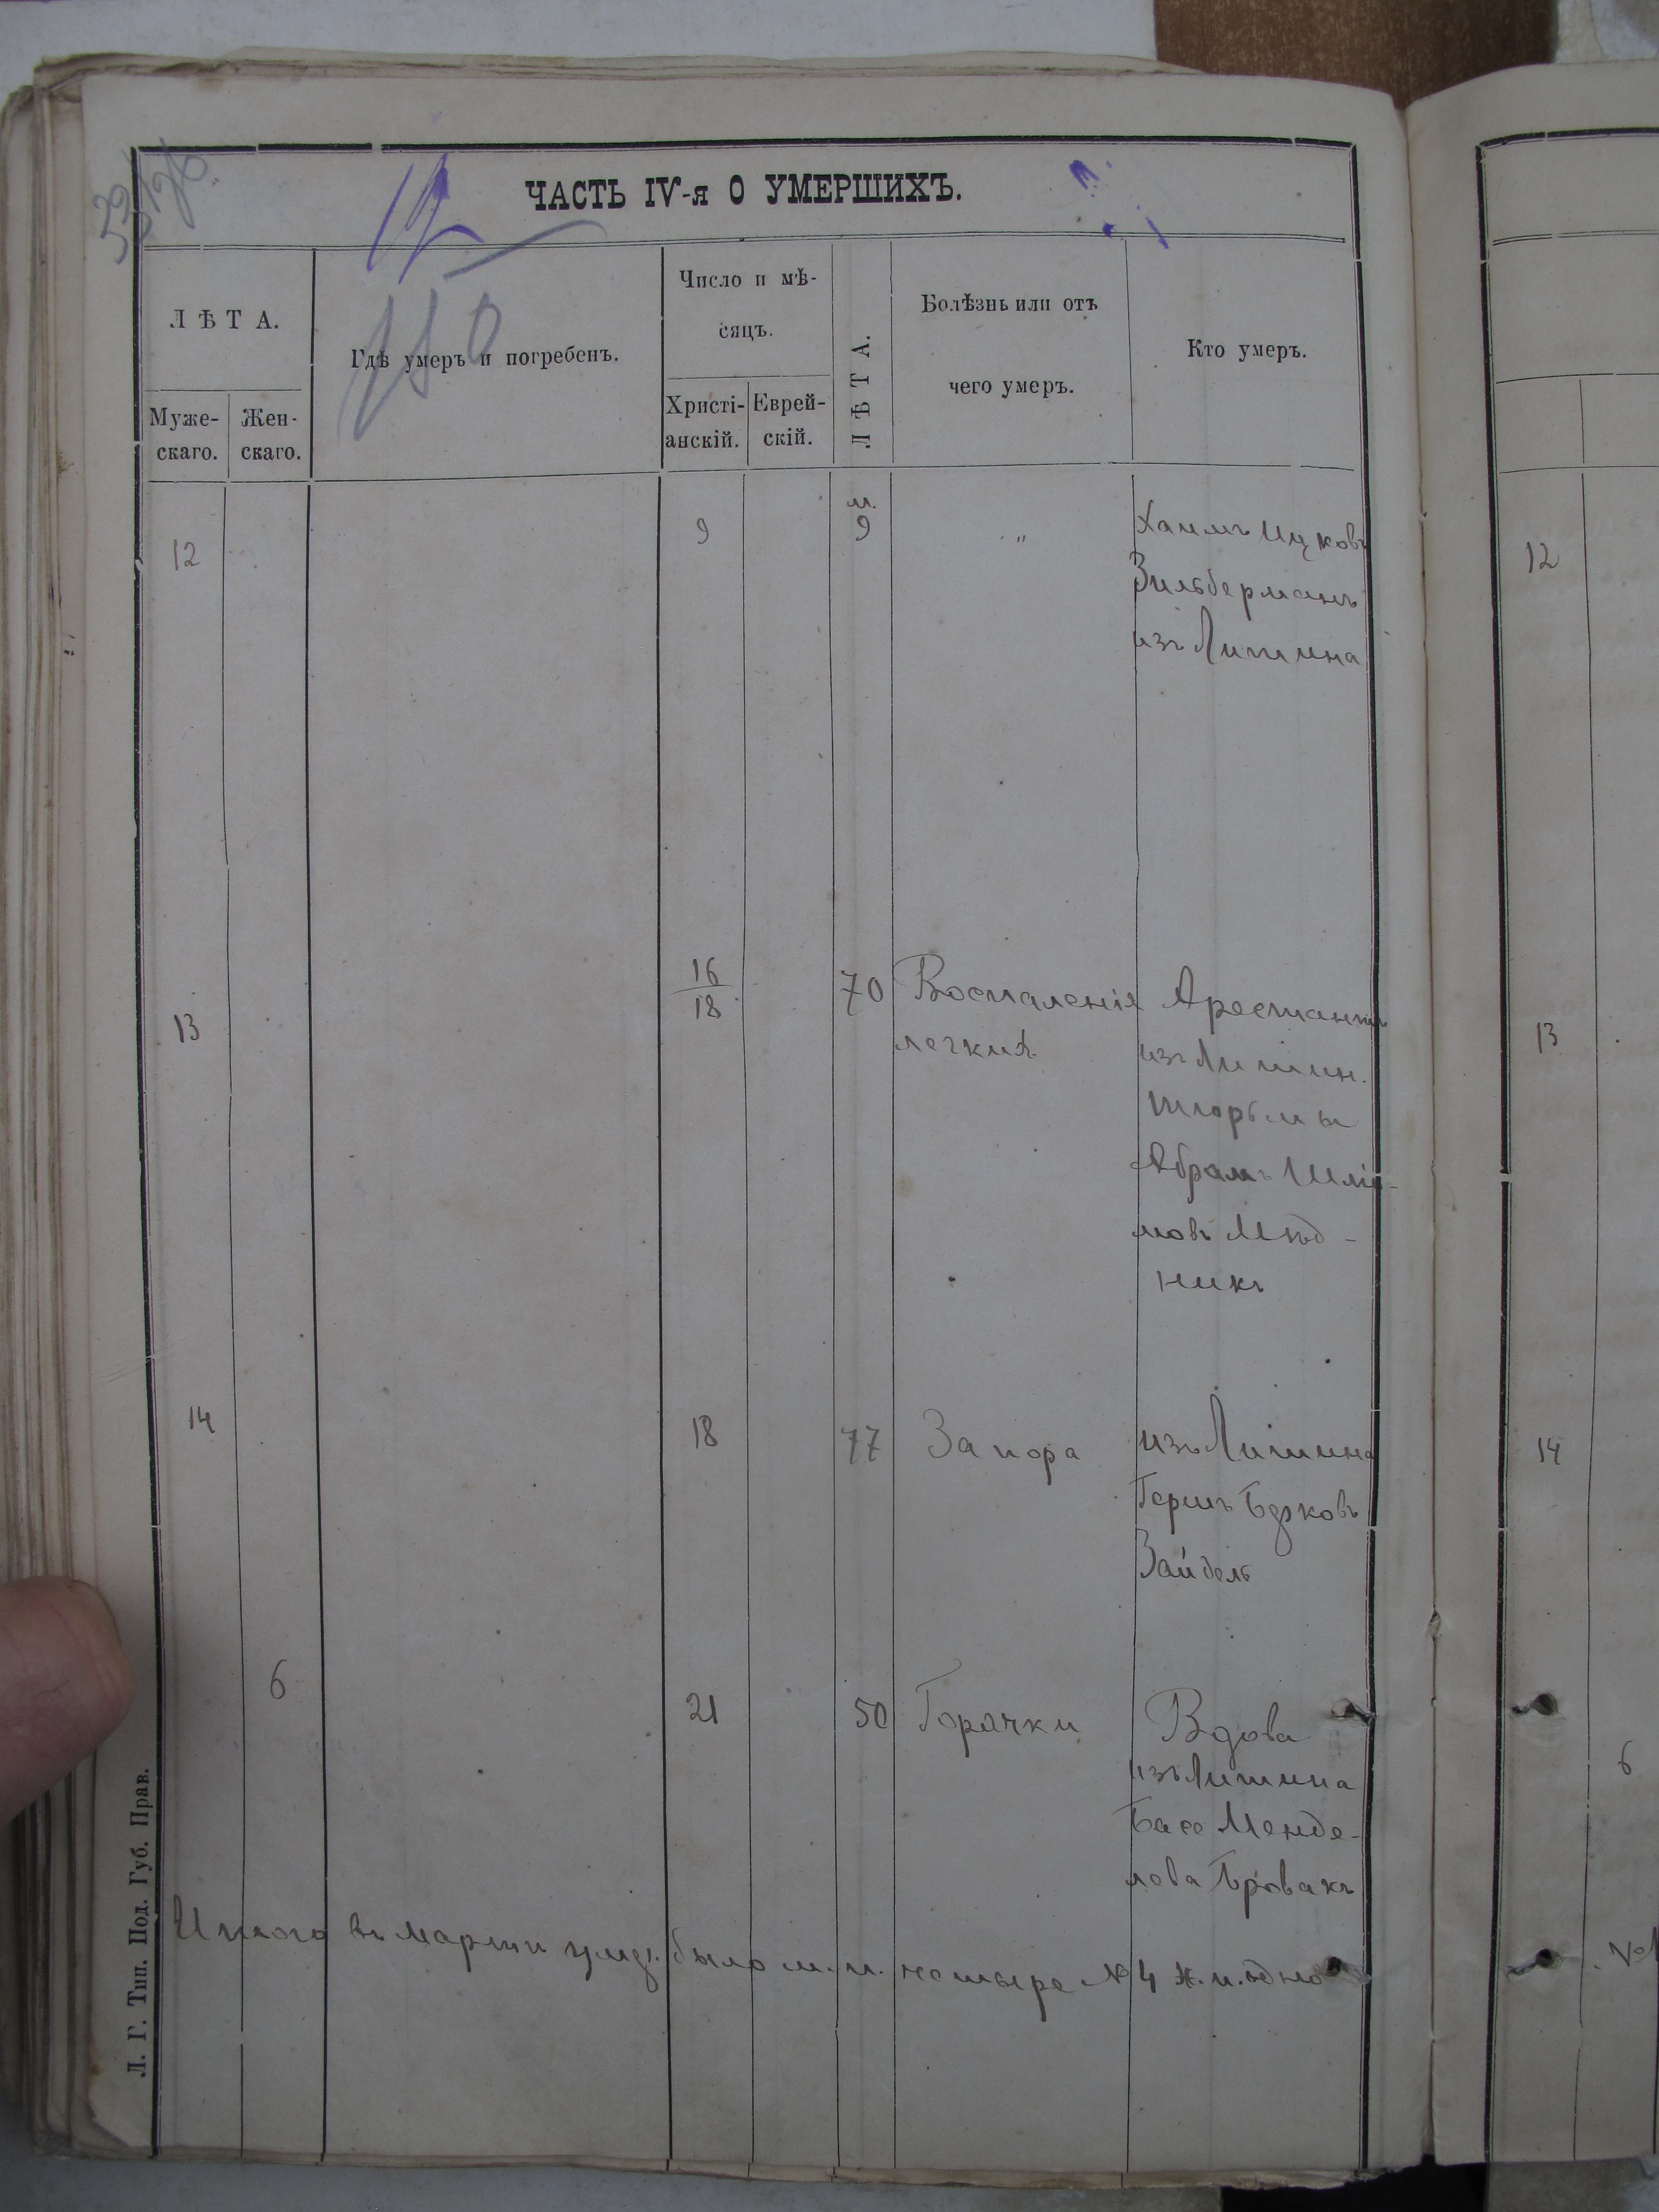 ЧАСТЬ IV-я О УМЕРШИХЪ.
ЛѢТА.
Муже-
скаго.
Жен-
скаго.
Гдѣ умеръ и погребенъ.
Число и мѣ-
сяцъ.
Христі-
анскій.
Еврей-
скій.
ЛѢТА.
Болѣзнь или отъ
чего умеръ.
Кто умеръ.
12
9
м.
9
"
Хаимъ Ицковъ
Зильберманъ
изъ Литина
12
13
16
18
70
Воспаленія
легкия
Арестантъ
изъ Литин.
тюрьмы
Абрамъ Шлі-
мовъ Мѣд-
никъ
13
14
18
77
Запора
изъ Литина
Гершъ Берковъ
Зайдель
14
6
21
50
Горячки
Вдова
изъ Литина
Бася Менде-
лева Бровакъ
6
Итого въ мартѣ умер. было м. п. четыре № 4 ж. п. одно
№1
Л. Г. Тип. Под. Губ. Прав.